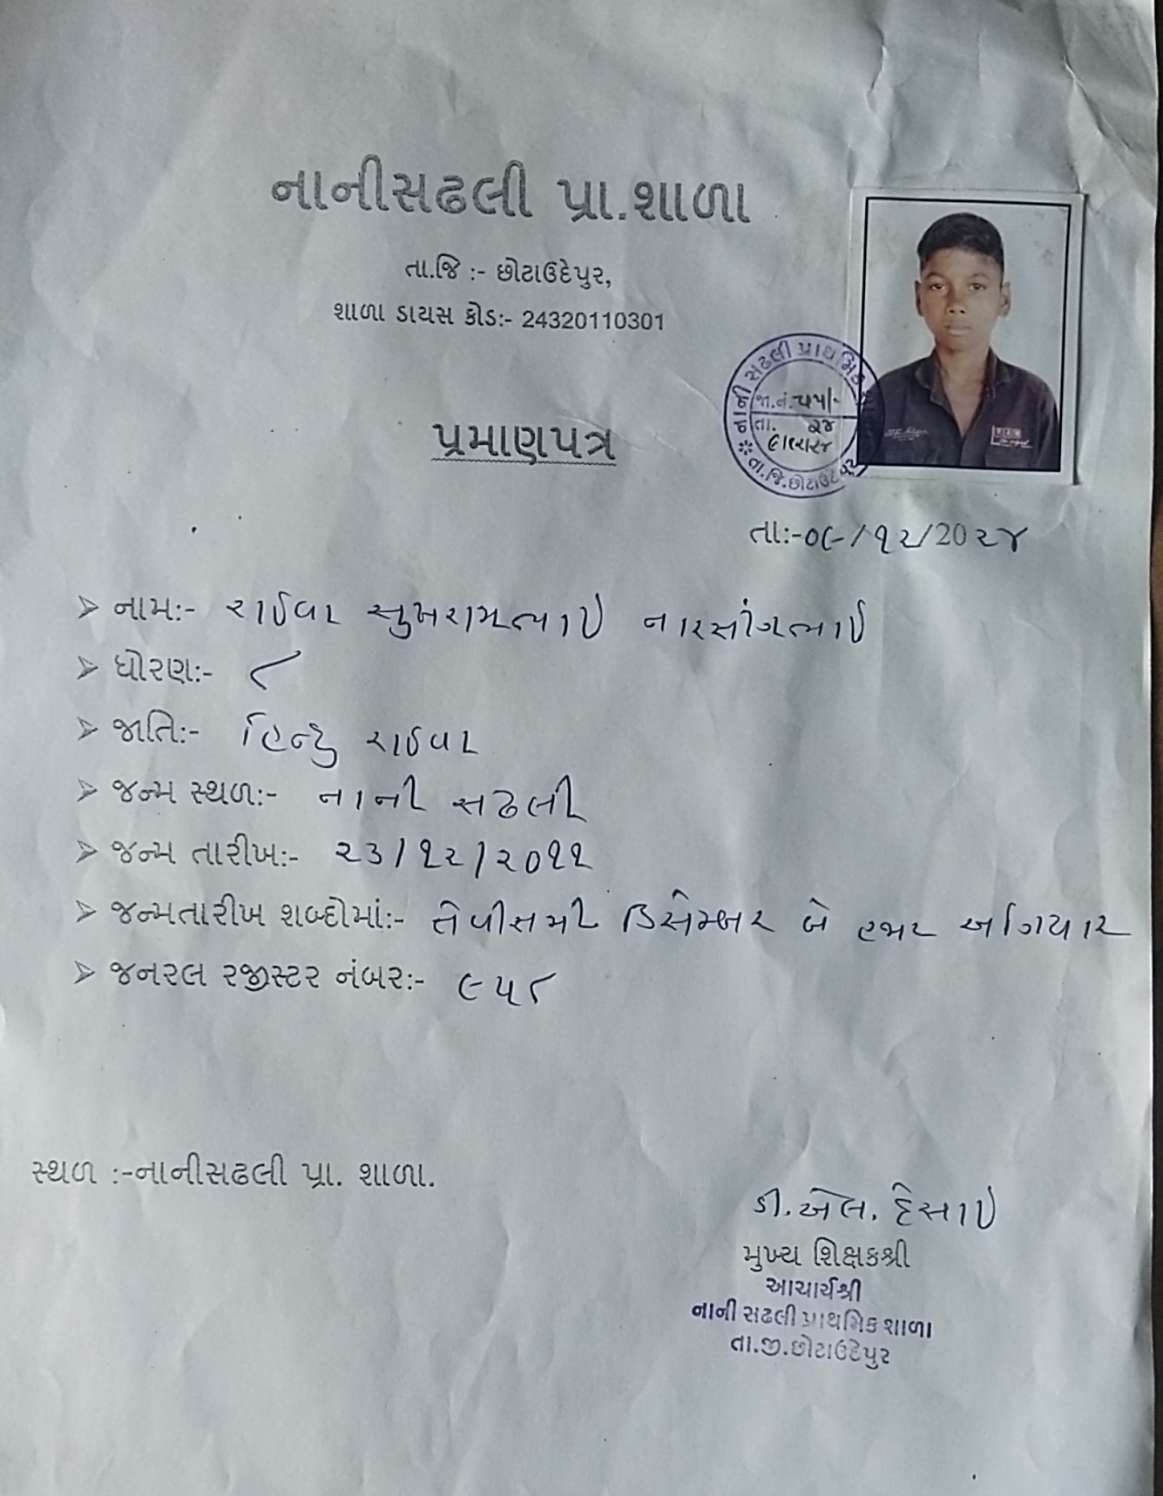 નાનીસઢલી પ્રા.શાળા
તા.જિ :- છોટાઉદેપુર,
શાળા ડાયસ કોડ:- 24320110301
નાની સઢલી પ્રાથમિક
જા.નં.
તા. ૨૪
તા.જિ.છોટાઉદેપુર
પ્રમાણપત્ર
તા:-૦૯/૧૨/20૨૪
➢ નામ:- રાઠવા સુખરામભાઇ નારસીંગભાઇ
➢ ધોરણ:- ૮
➢ જાતિ:- હિન્દુ રાઠવા
➢ જન્મ સ્થળ:- નાની સઢલી
➢ જન્મ તારીખ:- ૨૩/૧૨/૨૦૧૧
➢ જન્મતારીખ શબ્દોમાં:- તેવીસમી ડિસેમ્બર બે હજાર અગિયાર
➢ જનરલ રજીસ્ટર નંબર:- ૯૫૮
સ્થળ :-નાનીસઢલી પ્રા. શાળા.
ડી.એલ. દેસાઇ
મુખ્ય શિક્ષકશ્રી
આચાર્યશ્રી
નાની સઢલી પ્રાથમિક શાળા
તા.જી.છોટાઉદેપુર